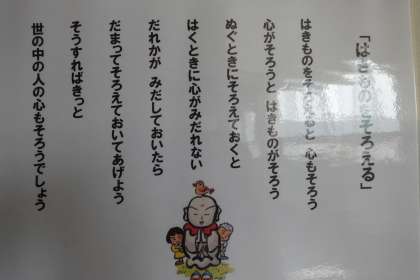 「はきものをそろえる」
はきものをそろえると 心もそろう
心がそろうと はきものがそろう
ぬぐときにそろえておくと
はくときに心がみだれない
だれかが みだしておいたら
だまってそろえておいてあげよう
そうすればきっと
世の中の人の心もそろうでしょう